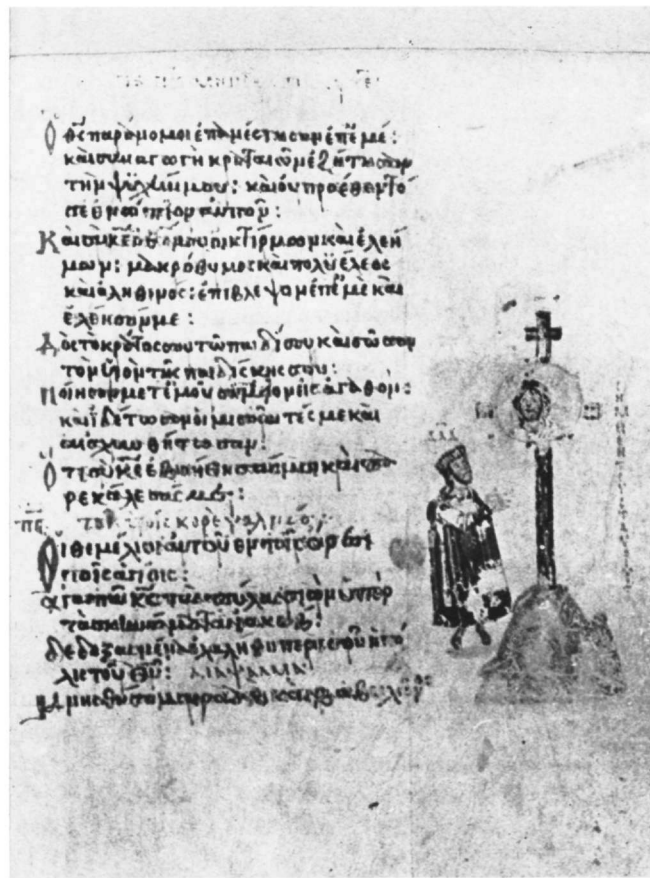 Ὁ θ̅ς̅ παράνομοι ἐπανέστησαν ἐπ' ἐμέ:
καὶ συναγωγὴ κραταιῶν ἐζήτησαν
τὴν ψυχήν μου: καὶ οὐ προέθεντό
σε ἐνώπιον αὐτῶν:
Καὶ σὺ κ̅ε̅ ὁ θ̅ς̅ μου οἰκτίρμων καὶ ἐλεή
μων: μακρόθυμος καὶ πολυέλεος
καὶ ἀληθινός: ἐπίβλεψον ἐπ' ἐμὲ καὶ
ἐλέησόν με:
Δὸς τὸ κράτος σου τῷ παιδί σου καὶ σῶσον
τὸν υἱὸν τῆς παιδίσκης σου:
Ποίησον μετ' ἐμοῦ σημεῖον εἰς ἀγαθόν:
καὶ ἰδέτωσαν οἱ μισοῦντές με καὶ
αἰσχυνθήτωσαν:
Ὅτι σὺ κ̅ε̅ ἐβοήθησάς μοι καὶ πα
ρεκάλεσάς με:
τοῖς κορὲ ψαλμὸς
Οἱ θεμέλιοι αὐτοῦ ἐν τοῖς ὄρεσι
τοῖς ἁγίοις:
ἀγαπᾷ κ̅ς̅ τὰς πύλας σιὼν ὑπὲρ
τὰ σκηνώματα ἰακώβ:
δεδοξασμένα ἐλαλήθη περὶ σοῦ ἡ πό
λις τοῦ θ̅υ̅: διάψαλμα
Μνησθήσομαι ραὰβ καὶ